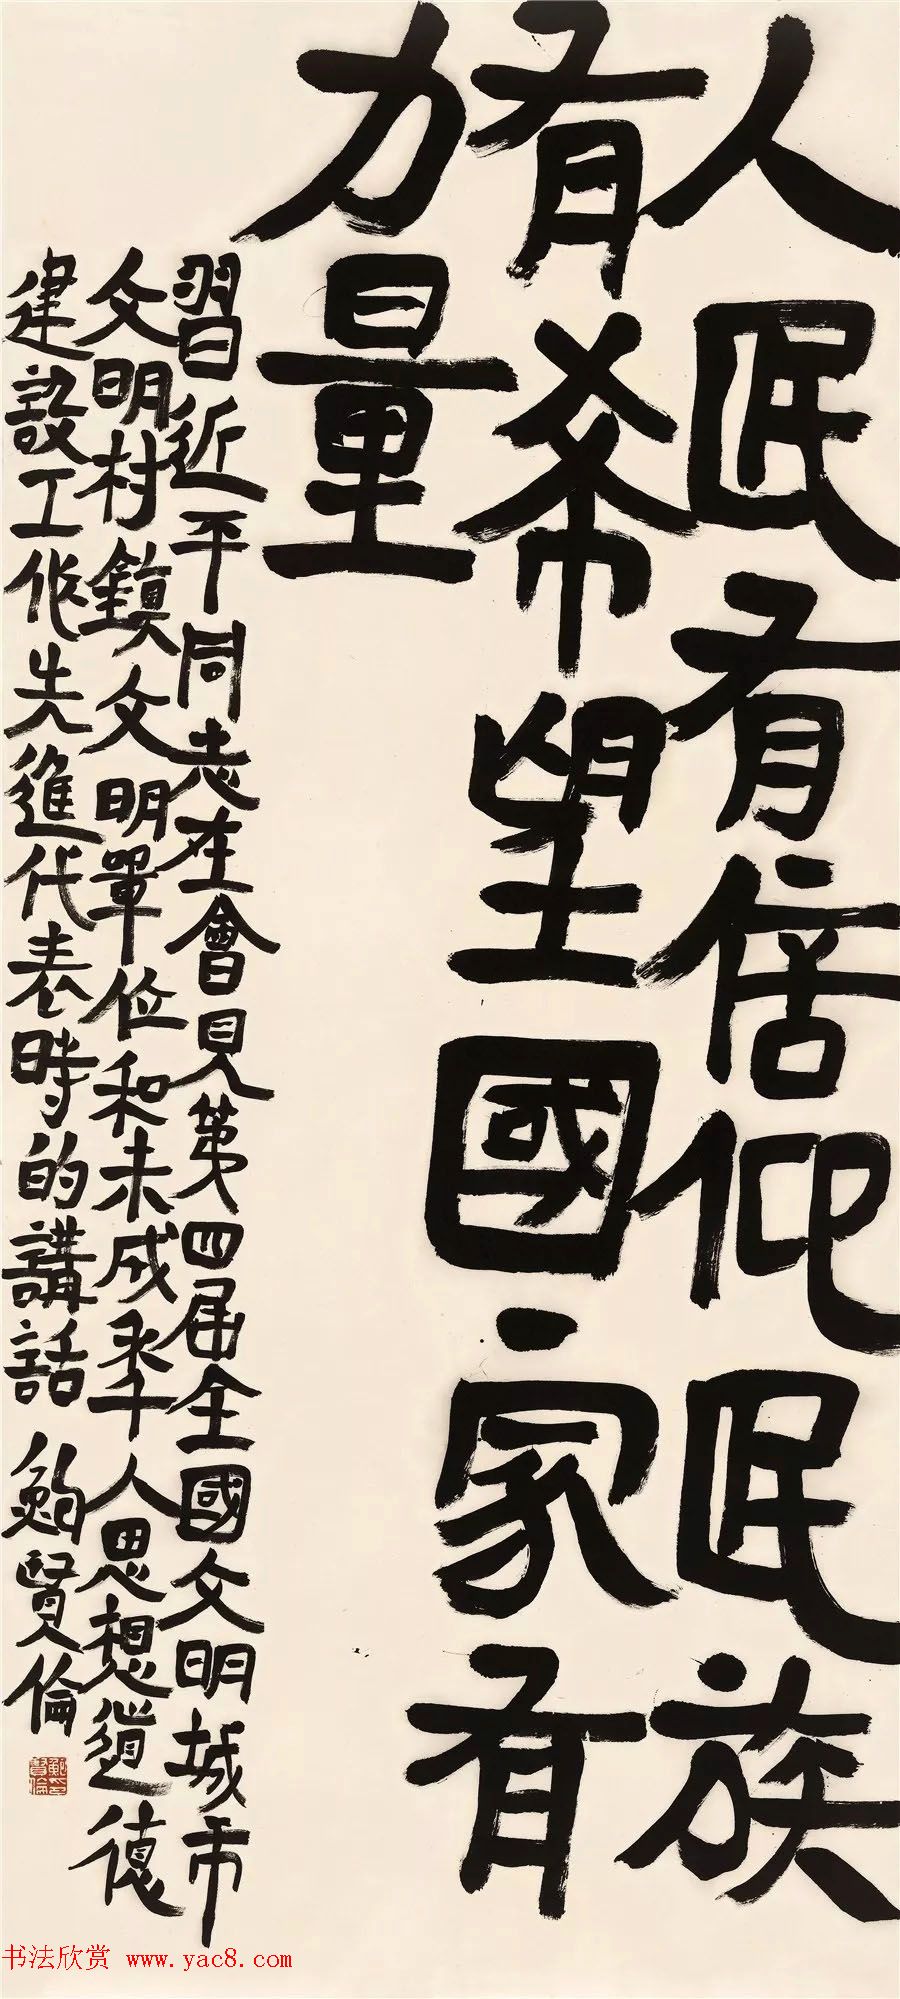 人民有信仰民族
有希望國家有
力量
習近平同志在會見第四届全國文明城市
文明村鎮文明單位和未成年人思想道德
建設工作先進代表時的講話 鮑賢倫
书法欣赏 www.yac8.com